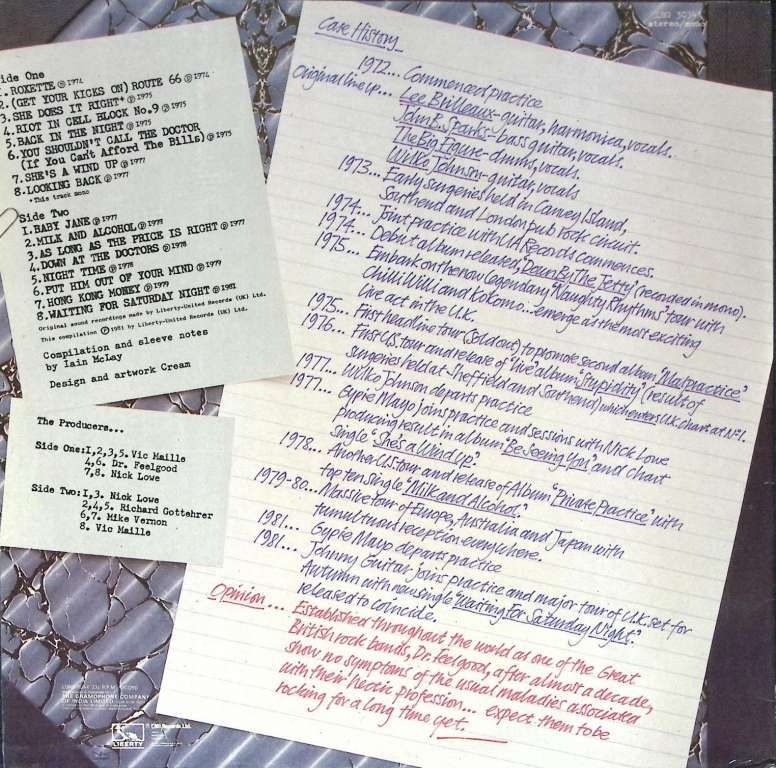 Side One
1. ROXETTE ℗ 1974
2. (GET YOUR KICKS ON) ROUTE 66 ℗ 1974
3. SHE DOES IT RIGHT* ℗ 1975
4. RIOT IN CELL BLOCK No.9 ℗ 1975
5. BACK IN THE NIGHT ℗ 1975
6. YOU SHOULDN'T CALL THE DOCTOR
(If You Can't Afford The Bills) ℗ 1975
7. SHE'S A WIND UP ℗ 1977
8. LOOKING BACK ℗ 1977
*This track mono
Side Two
1. BABY JANE ℗ 1977
2. MILK AND ALCOHOL ℗ 1978
3. AS LONG AS THE PRICE IS RIGHT ℗ 1977
4. DOWN AT THE DOCTORS ℗ 1978
5. NIGHT TIME ℗ 1978
6. PUT HIM OUT OF YOUR MIND ℗ 1979
7. HONG KONG MONEY ℗ 1979
8. WAITING FOR SATURDAY NIGHT ℗ 1981
Original sound recordings made by Liberty-United Records (UK) Ltd.
This compilation ℗ 1981 by Liberty-United Records (UK) Ltd.
Compilation and sleeve notes
by Iain McLay
Design and artwork Cream
The Producers...
Side One:1,2,3,5. Vic Maille
4,6. Dr. Feelgood
7,8. Nick Lowe
Side Two:1,3. Nick Lowe
2,4,5. Richard Gottehrer
6,7. Mike Vernon
8. Vic Maille
stereo/mono
Case History
1972... Commenced practice
Original line up... Lee Brilleaux-guitar, harmonica, vocals.
John B. Sparks-bass guitar, vocals.
The Big Figure-drums, vocals.
Wilko Johnson-guitar, vocals
1973... Early surgeries held in Canvey Island,
Southend and London pub rock circuit.
1974... Joint practice with UA Records commences.
1974... Debut album released, "Down By The Jetty" (recorded in mono).
1975... Embark on the now legendary "Naughty Rhythms" tour with
Chilli Willi and Kokomo...emerge as the most exciting
live act in the U.K.
1975... First headline tour (sold out) to promote second album, "Malpractice"
1976... First U.S. tour and release of "live" album, "Stupidity" (result of
surgeries held at Sheffield and Southend) which enters U.K. chart at No1.
1977... Wilko Johnson departs practice
1977... Gypie Mayo joins practice and sessions with Nick Lowe
producing result in album "Be Seeing You" and chart
single "She's a Wind Up".
1978... Another U.S. tour and release of Album "Private Practice" with
top ten single "Milk and Alcohol".
1979-80... Massive tour of Europe, Australia and Japan with
tumultuous reception everywhere.
1981... Gypie Mayo departs practice
1981... Johnny Guitar joins practice and major tour of U.K. set for
Autumn with new single "Waiting For Saturday Night".
released to coincide.
Opinion... Established throughout the world as one of the Great
British rock bands, Dr. Feelgood, after almost a decade,
show no symptoms of the usual maladies associated
with their hectic profession... expect them to be
rocking for a long time yet.
THE GRAMOPHONE COMPANY
OF INDIA LIMITED
LIBERTY